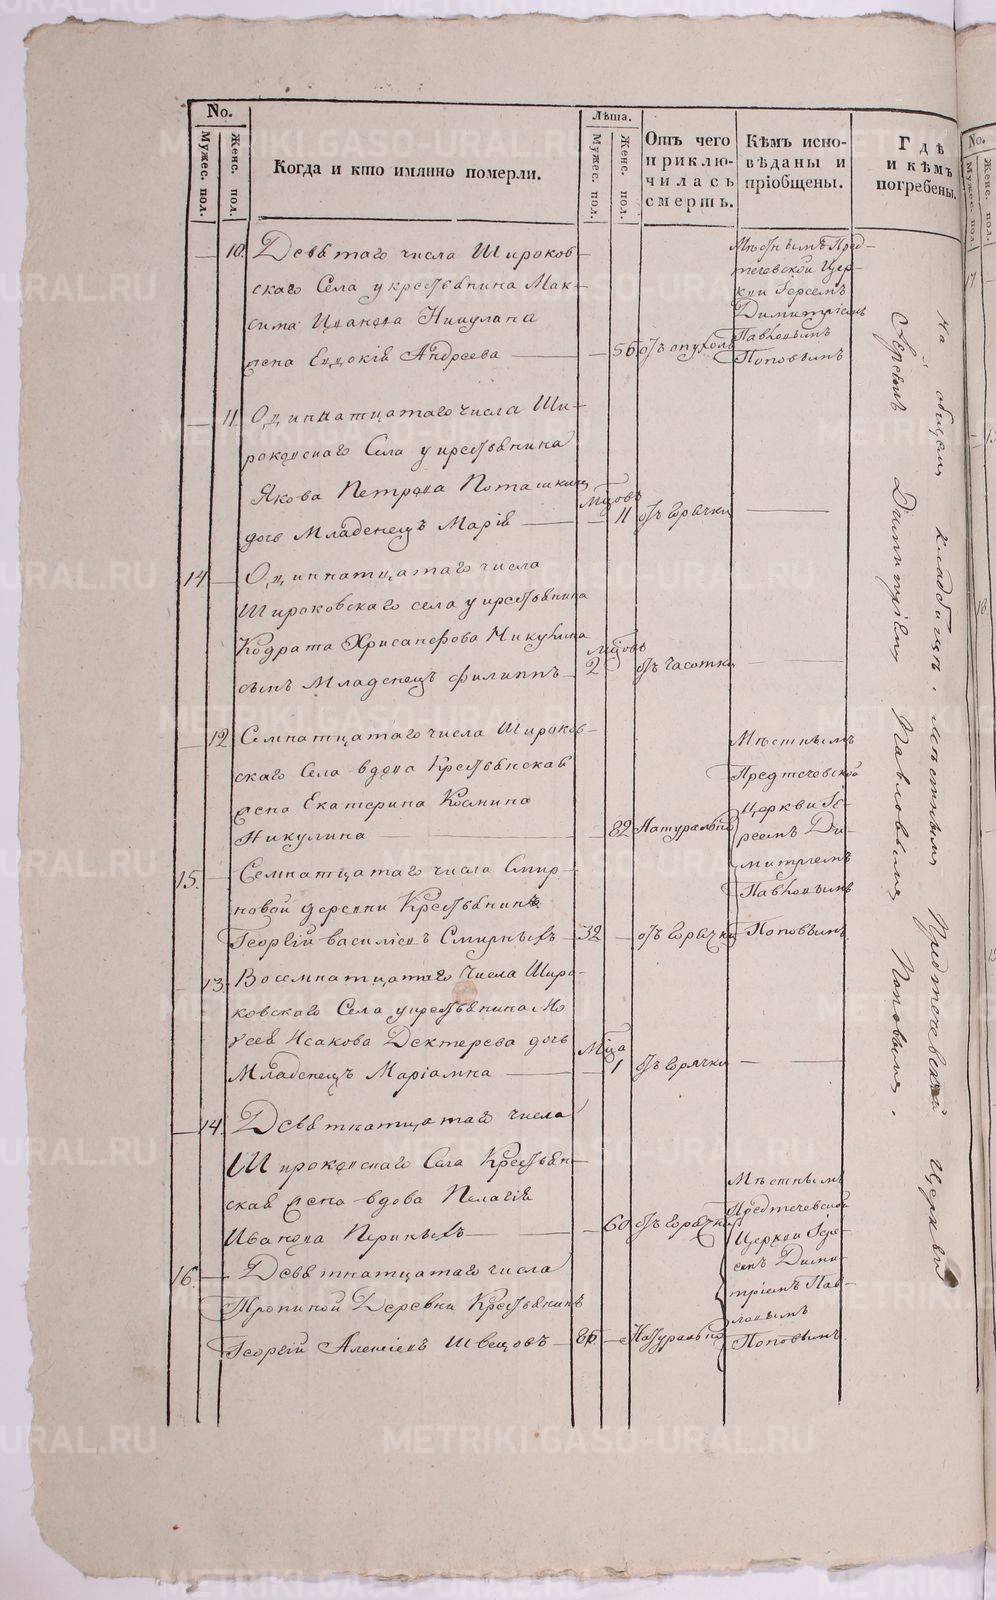 No.
Мужес. пол.
Женс. пол.
Когда и кто имянно померли.
Лѣта.
Мужес. пол.
Женс. пол.
Отъ чего приключилась смерть.
Кѣмъ исповѣданы и пріобщены.
Гдѣ и кѣмъ погребены.
10. Девятаго числа Широков-
скаго Села у крестьянина Мак-
сима Иванова Никулина
жена Евдокія Андреева — 56 отъ опухоли
Мѣстнымъ Пред-
течевской Цер-
кви Іереемъ
Димитріемъ
Павловымъ
Поповымъ
11. Одиннатцатаго числа Ши-
роковскаго Села у крестьянина
Якова Петрова Поташкина
дочь Младенецъ Марія — мцовъ 11 отъ горячки
14 Одиннатцатаго числа
Широковскаго села у крестьянина
Кодрата Хрисанфова Никулина
сынъ Младенецъ филиппъ мцовъ 2 отъ чесотки
12 Семнатцатаго числа Широков-
скаго Села вдова Крестьянская
жена Екатерина Космина
Никулина — 82 Натурально
Мѣстнымъ
Предтечевской
Церкви Іе-
реемъ Ди-
митріемъ
Павловымъ
Поповымъ
15. Семнатцатаго числа Смир-
новой деревни Крестьянинъ
Георгій василіевъ Смирныхъ 32 — отъ горячки
13 Восемнатцатаго Числа Широ-
ковскаго Села у крестьянина Мо
усея Исакова Дектерева дочь
Младенецъ Маріамна — мца 1 отъ горячки
14. Девятнатцатаго числа
Широковскаго Села Крестьян-
ская жена вдова Пелагія
Иванова — 60 отъ горячки
Мѣстнымъ
Предтечевской
Церкви Іере-
емъ Дими-
тріемъ Пав-
ловымъ
Поповымъ
16. Девятнатцатаго числа
Тропиной Деревни Крестьянинъ
Георгій Алексіевъ Швецовъ — 86 — Натурально
На общемъ кладбищѣ, мѣстнымъ Предтечевской Церкви
Іереемъ Димитріемъ Павловымъ Поповымъ.
No.
Мужес. пол.
Женс. пол.
17
18
METRIKI.GASO-URAL.RU